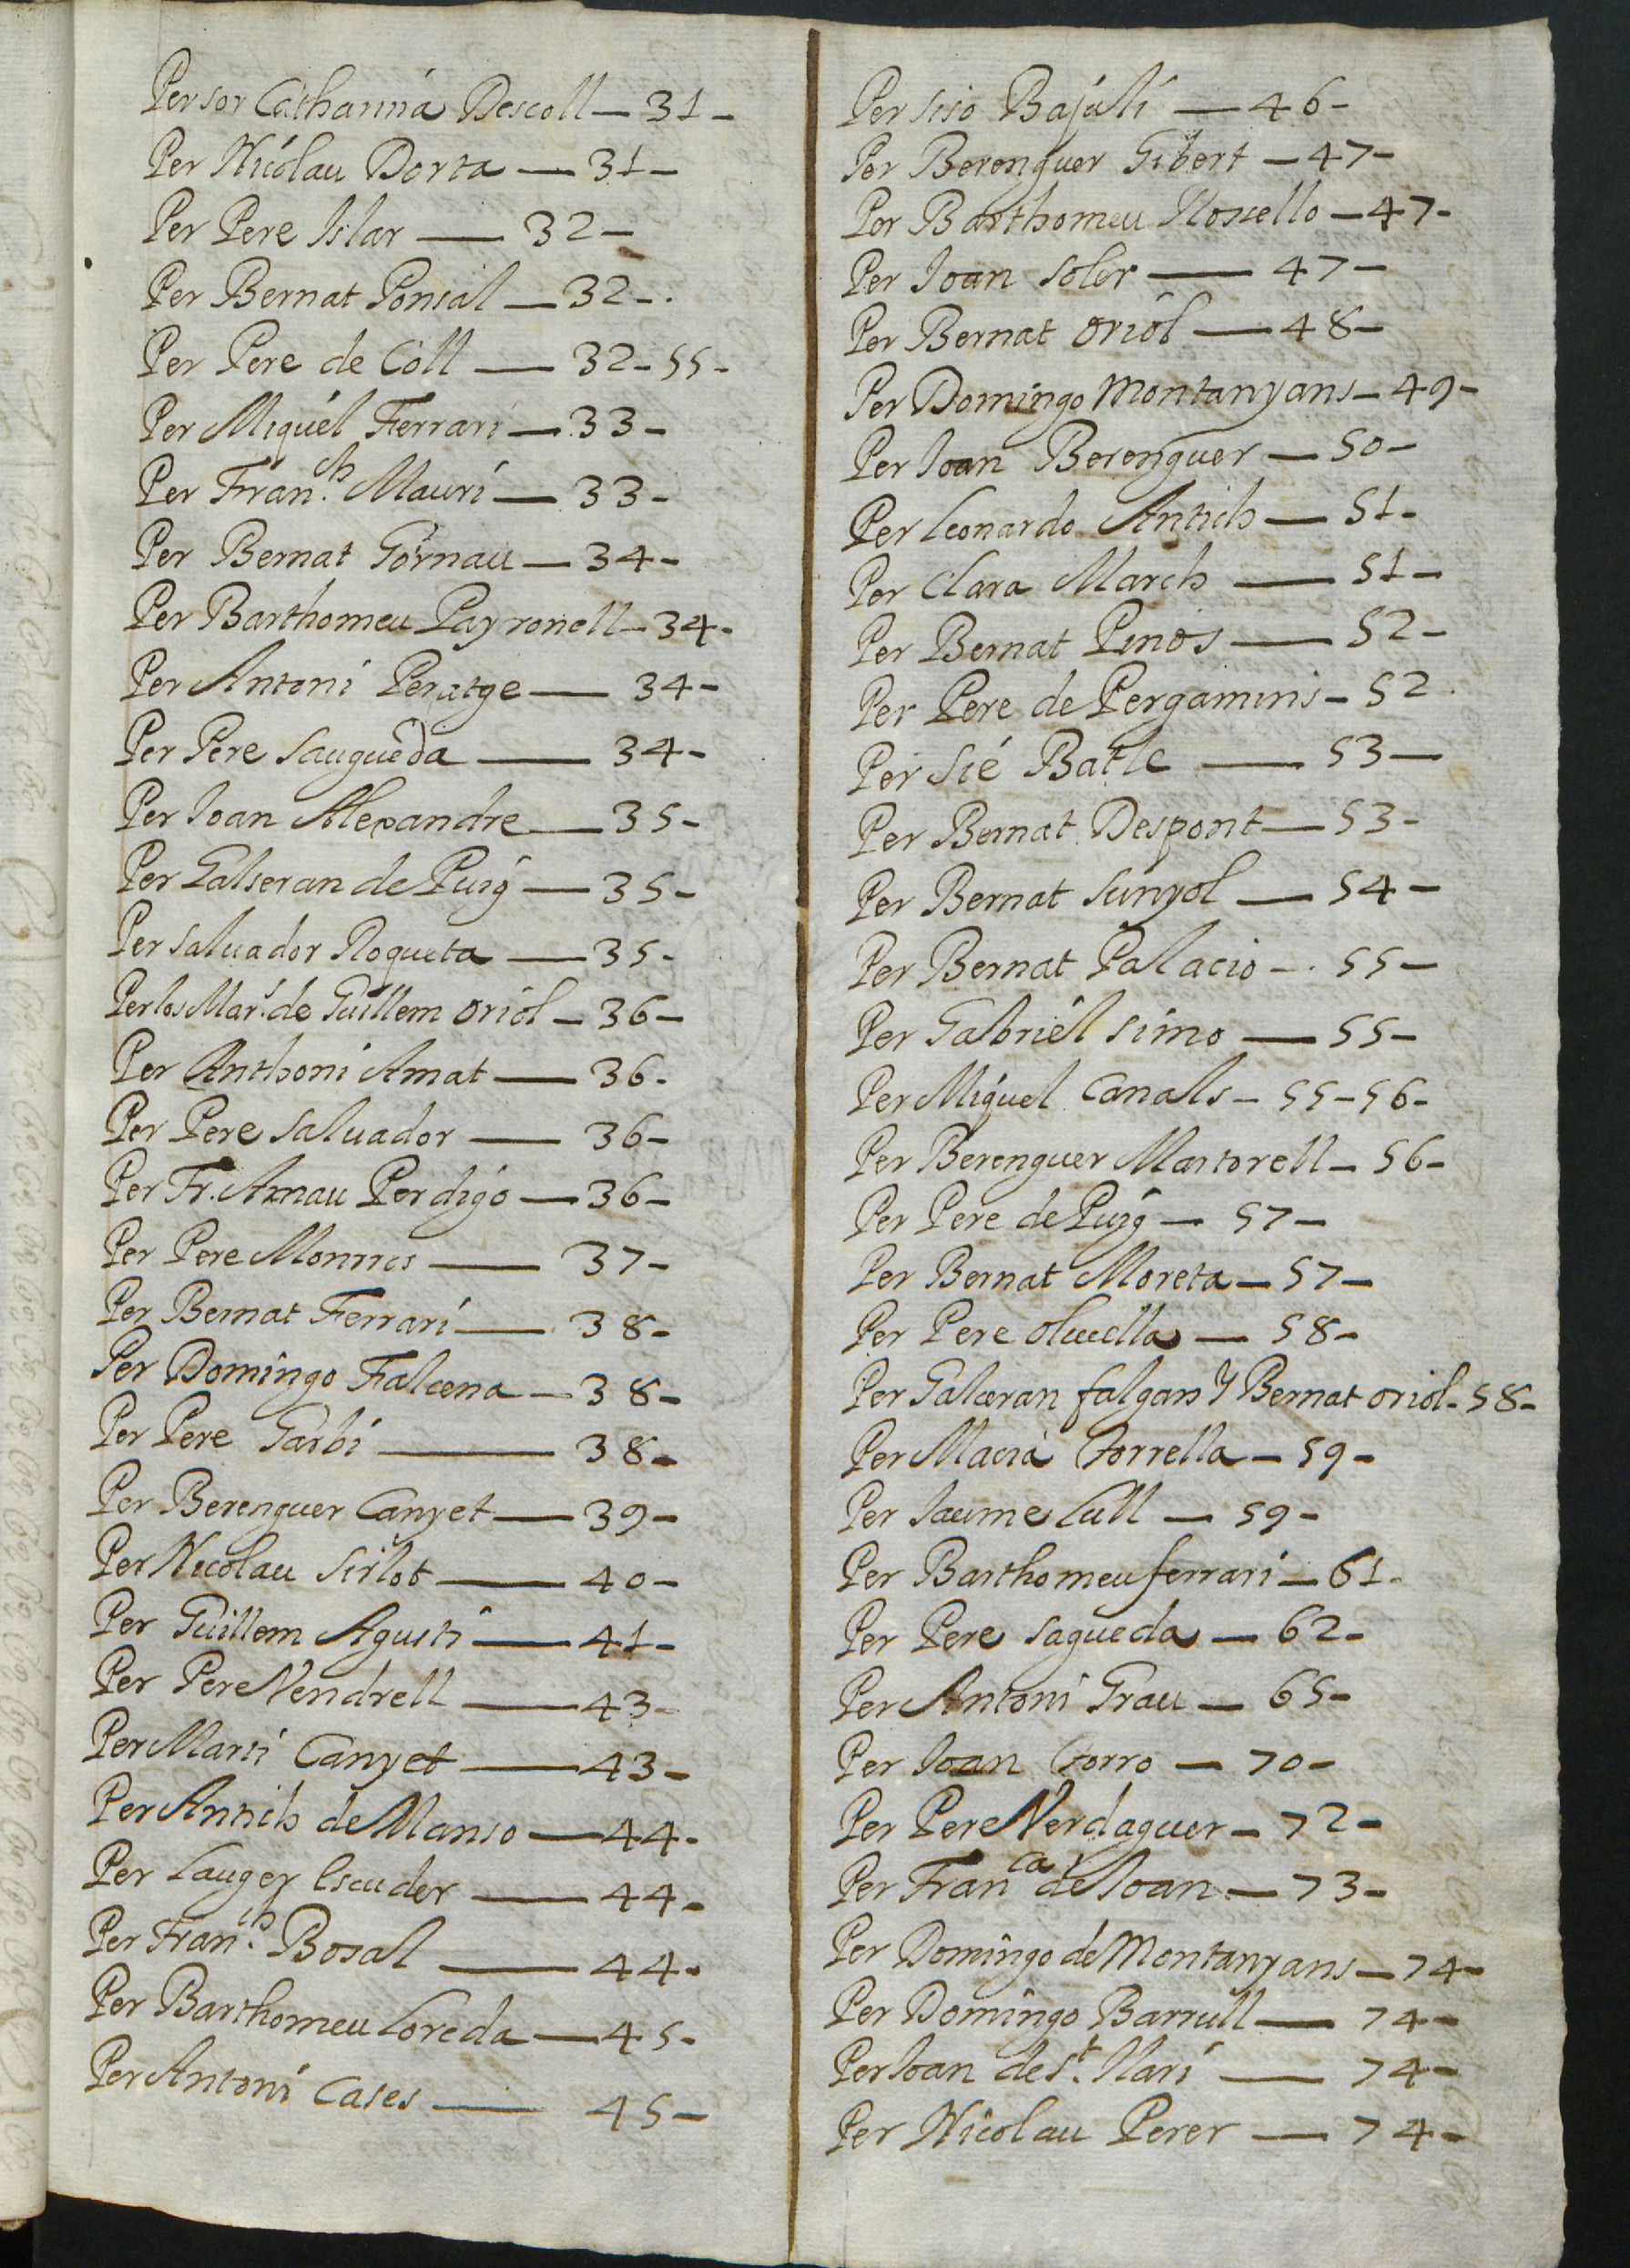 Per sor Catharina Descoll — 31 -
Per Nicolau Dorta — 31 -
Per Pere Islar — 32 -
Per Bernat Ponsal — 32 - .
Per Pere de Coll — 32 - 55 -
Per Miquel Ferrari — 33 -
Per Fran.ch Mauri — 33 -
Per Bernat Gornau — 34 -
Per Barthomeu Payronell — 34 -
Per Antoni Peratge — 34 -
Per Pere Saugueda — 34 -
Per Joan Alexandre — 35 -
Per Galseran de Puig — 35 -
Per Saluador Roqueta — 35 -
Per los Mar.s de Guillem Oriol — 36 -
Per Anthoni Amat — 36 -
Per Pere Saluador — 36 -
Per Fr. Arnau Perdigo — 36 -
Per Pere — 37 -
Per Bernat Ferrari — 38 -
Per Domingo Falcena — 38 -
Per Pere Garbi — 38 -
Per Berenguer Canyet — 39 -
Per Nicolau Sirlot — 40 -
Per Guillem Agusti — 41 -
Per Pere Vendrell — 43 -
Per Marti Canyet — 43 -
Per Antich de Manso — 44 -
Per Lauger Escuder — 44 -
Per Fran.ch Bosal — 44 -
Per Barthomeu Loreda — 45 -
Per Antoni Cases — 45 -
Per Siso Bajuli — 46 -
Per Berenguer Gibert — 47 -
Per Barthomeu Rossello — 47 -
Per Joan Soler — 47 -
Per Bernat Oriol — 48 -
Per Domingo Montanyans — 49 -
Per Joan Berenguer — 50 -
Per Leonardo Antich — 51 -
Per Clara March — 51 -
Per Bernat Pinos — 52 -
Per Pere de Pergamins - 52
Per Sié Batle — 53 —
Per Bernat Despont — 53 -
Per Bernat Sunyol — 54 -
Per Bernat Palacio - . 55 -
Per Gabriel Simo — 55 -
Per Miquel Canals - 55 - 56 -
Per Berenguer Martorell - 56 -
Per Pere de Puig — 57 -
Per Bernat Moreta — 57 -
Per Pere Oluella — 58 -
Per Galceran falgars y Bernat Oriol - 58 -
Per Macia Torrella — 59 -
Per Jaume Lull — 59 -
Per Barthomeu ferrari — 61 -
Per Pere Sagueda — 62 -
Per Antoni Grau — 65 -
Per Joan Torro — 70 -
Per Pere Verdaguer - 72 -
Per Fran.ca de Joan — 73 -
Per Domingo de Montanyans — 74 -
Per Domingo Barrull — 74 -
Per Joan de S.t Ilari — 74 -
Per Nicolau Perer — 74 -